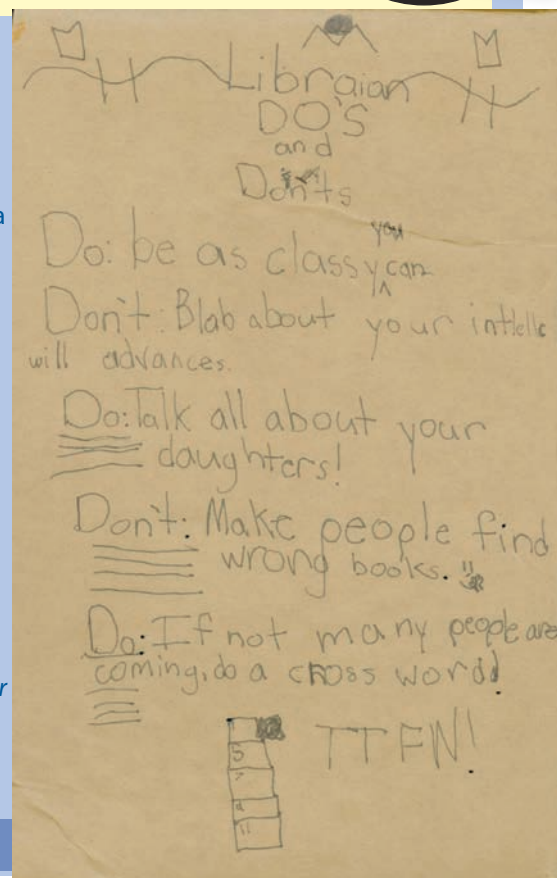 Libraian
DO'S
and
Don'ts
Do: be as classy you can
Don't: Blab about your intlelle
will advances.
Do: Talk all about your
daughters!
Don't: Make people find
wrong books.
Do: If not many people are
coming, do a cross word!
1
5
7
9
11
TTFN!